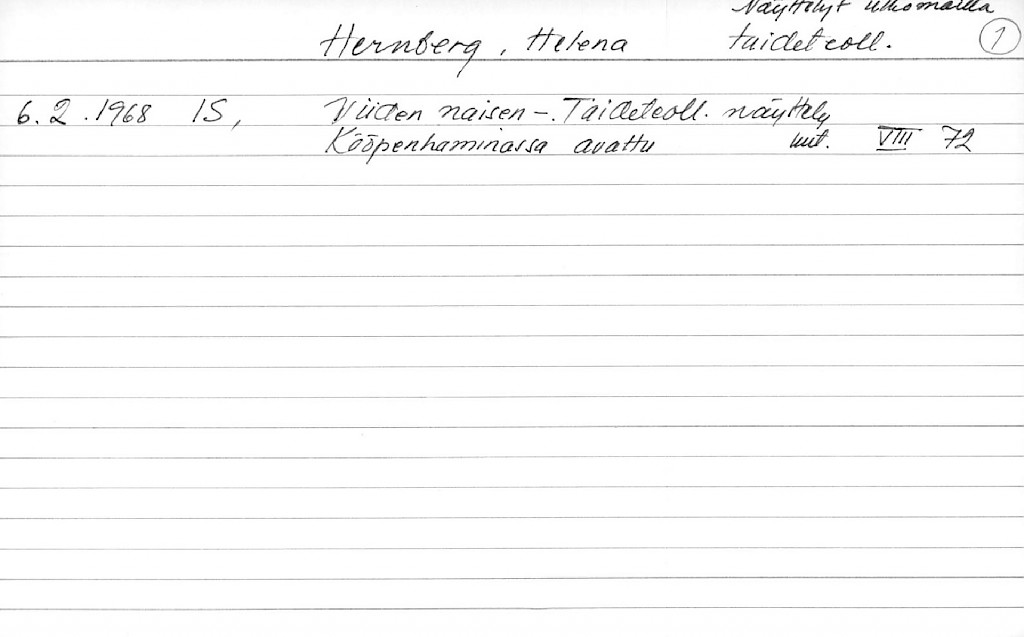 Näyttelyt ulkomailla
Hernberg, Helena taideteoll. 1
6.2.1968 IS, Viiden naisen -. Taideteoll. näyttely
Kööpenhaminassa avattu uut. VIII 72